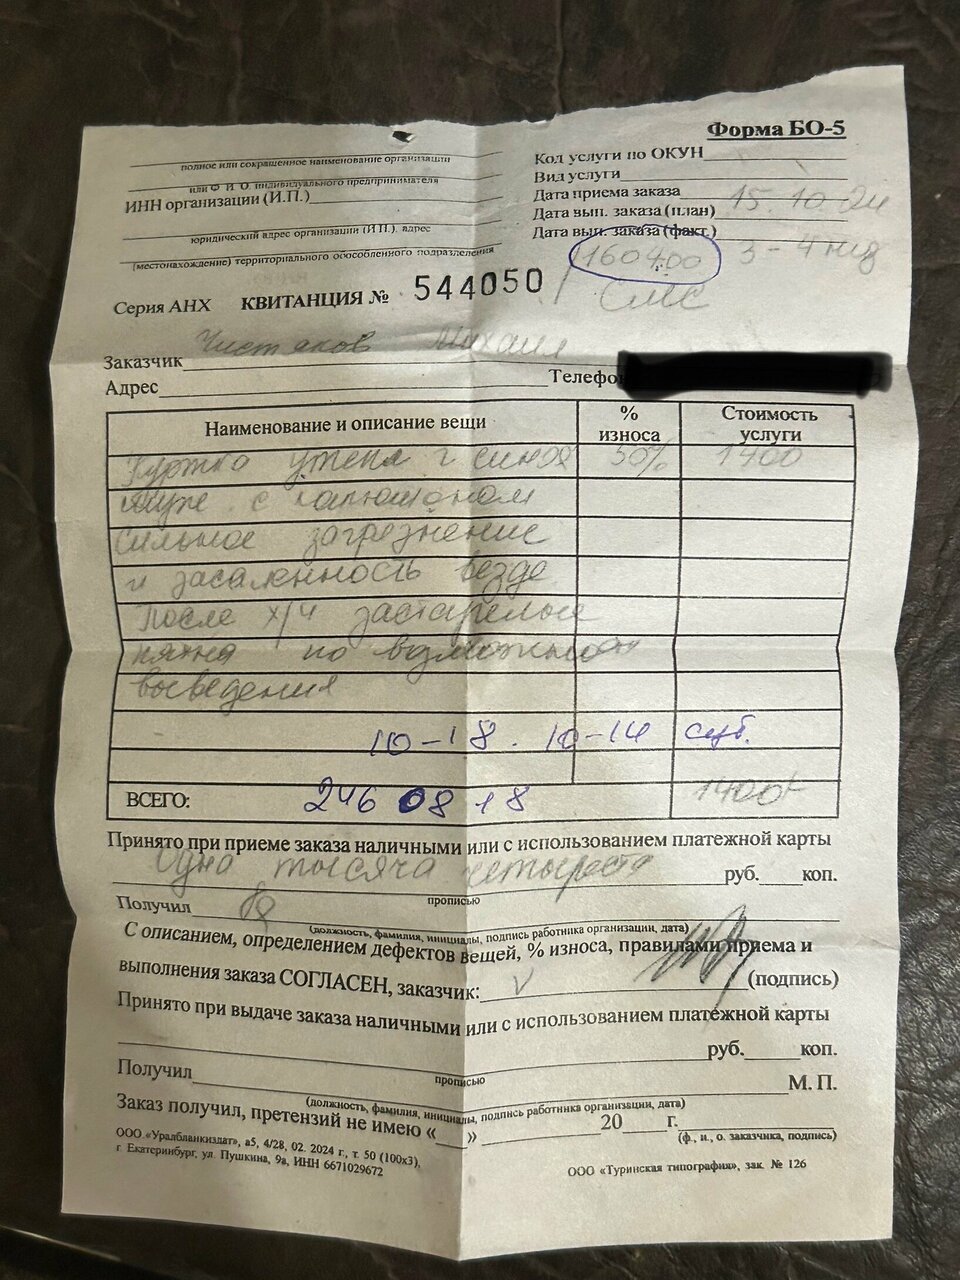 Форма БО-5
полное или сокращенное наименование организации
Код услуги по ОКУН
Вид услуги
или Ф И О индивидуального предпринимателя
ИНН организации (И.П.)
Дата приема заказа 15.10.24
Дата вып. заказа (план)
юридический адрес организации (И.П.), адрес
Дата вып. заказа (факт.)
(местонахождение) территориального обособленного подразделения
160400 3-4 нед
Серия АНХ КВИТАНЦИЯ № 544050
СМС
Заказчик Чистяков Михаил
Адрес Телефо
Наименование и описание вещи
% износа
Стоимость услуги
Куртка утепл синяя 50% 1400
муж с капюшоном
сильное загрезнение
и засаленность везде
После х/ч застарелые
пятна по возможности
выведения
10-18. 10-14 суб.
ВСЕГО: 246 08 18 1400
Принято при приеме заказа наличными или с использованием платежной карты
Одна тысяча четыреста руб. коп.
прописью
Получил
(должность, фамилия, инициалы, подпись работника организации, дата)
С описанием, определением дефектов вещей, % износа, правилами приема и
выполнения заказа СОГЛАСЕН, заказчик: V (подпись)
Принято при выдаче заказа наличными или с использованием платежной карты
руб. коп.
прописью
Получил М. П.
(должность, фамилия, инициалы, подпись работника организации, дата)
Заказ получил, претензий не имею « » 20 г.
(ф., и., о. заказчика, подпись)
ООО «Уралбланкиздат», а5, 4/28, 02. 2024 г., т. 50 (100х3),
г. Екатеринбург, ул. Пушкина, 9а, ИНН 6671029672
ООО «Туринская типография», зак. № 126